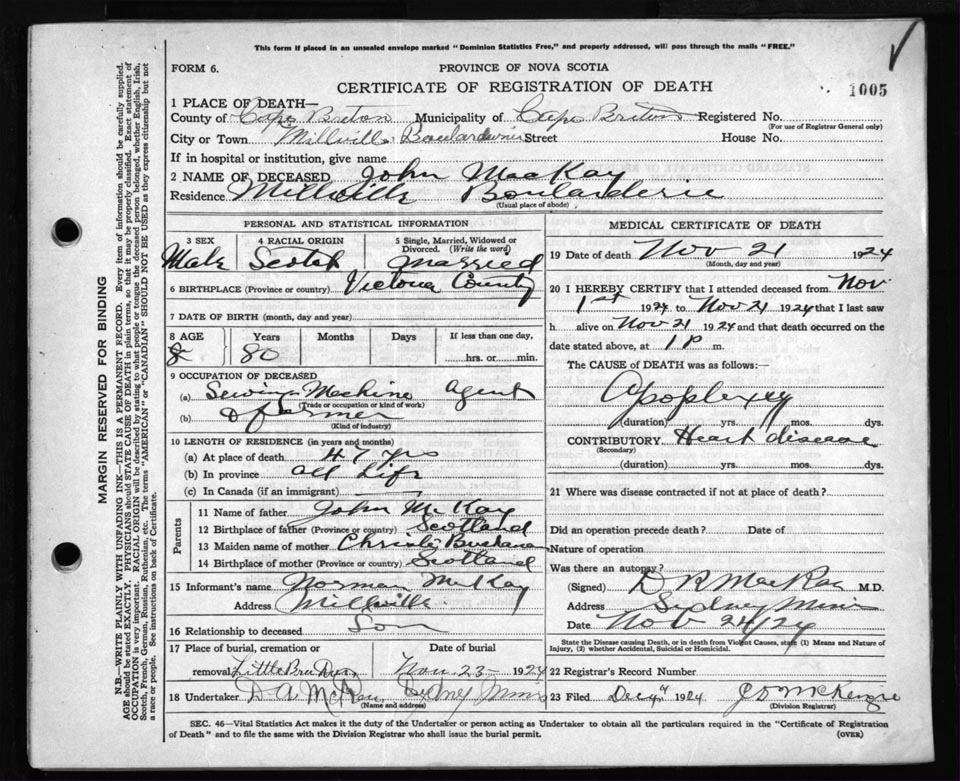 This form if placed in an unsealed envelope marked "Dominion Statistics Free," and properly addressed, will pass through the mails "FREE."
FORM 6.
PROVINCE OF NOVA SCOTIA
CERTIFICATE OF REGISTRATION OF DEATH
1005
1 PLACE OF DEATH—
County of Cape Breton Municipality of Cape Breton Registered No.
(For use of Registrar General only)
City or Town Millville Boularderie Street House No.
If in hospital or institution, give name
2 NAME OF DECEASED John MacKay
Residence Millville Boularderie
(Usual place of abode)
PERSONAL AND STATISTICAL INFORMATION
3 SEX 4 RACIAL ORIGIN 5 Single, Married, Widowed or Divorced. (Write the word)
Male Scotch married
6 BIRTHPLACE (Province or country) Victoria County
7 DATE OF BIRTH (month, day and year)
8 AGE Years Months Days If less than one day,
80 hrs. or min.
9 OCCUPATION OF DECEASED
(a) Sewing Machine Agent
(Trade or occupation or kind of work)
(b) & farmer
(Kind of industry)
10 LENGTH OF RESIDENCE (in years and months)
(a) At place of death 47 yrs
(b) In province all life
(c) In Canada (if an immigrant)
Parents
11 Name of father John McKay
12 Birthplace of father (Province or country) Scotland
13 Maiden name of mother Christy
14 Birthplace of mother (Province or country) Scotland
15 Informant's name Norman McKay
Address Millville
16 Relationship to deceased Son
17 Place of burial, cremation or removal Date of burial
Little Bras Dor Nov. 23- 1924
18 Undertaker D A Sydney Mines
(Name and address)
MEDICAL CERTIFICATE OF DEATH
19 Date of death Nov 21 1924
(Month, day and year)
20 I HEREBY CERTIFY that I attended deceased from Nov
1st 1924 to Nov 21 1924 that I last saw
h alive on Nov 21 1924 and that death occurred on the
date stated above, at 1 P m.
The CAUSE OF DEATH was as follows:—
Apoplexy
(duration) yrs. mos. dys.
CONTRIBUTORY Heart disease
(Secondary)
(duration) yrs. mos. dys.
21 Where was disease contracted if not at place of death?
Did an operation precede death? Date of
Nature of operation
Was there an autopsy?
(Signed) D R MacRae M.D.
Address Sydney Mines
Date Nov 24/24
State the Disease causing Death, or in death from Violent Causes, state (1) Means and Nature of Injury, (2) whether Accidental, Suicidal or Homicidal.
22 Registrar's Record Number
23 Filed Dec 4th 1924 McKenzie
(Division Registrar)
SEC. 46—Vital Statistics Act makes it the duty of the Undertaker or person acting as Undertaker to obtain all the particulars required in the "Certificate of Registration
of Death" and to file the same with the Division Registrar who shall issue the burial permit.
(OVER)
MARGIN RESERVED FOR BINDING
N.B.—WRITE PLAINLY WITH UNFADING INK—THIS IS A PERMANENT RECORD. Every item of information should be carefully supplied.
AGE should be stated EXACTLY. PHYSICIANS should STATE CAUSE OF DEATH in plain terms, so that it may be properly classified. Exact statement of
OCCUPATION is very important. RACIAL ORIGIN will be described by stating to what people or tongue the deceased person belonged, whether English, Irish,
Scotch, French, German, Russian, Ruthenian, etc. The terms "AMERICAN" or "CANADIAN" SHOULD NOT BE USED as they express citizenship but not
a race or people. See instructions on back of Certificate.